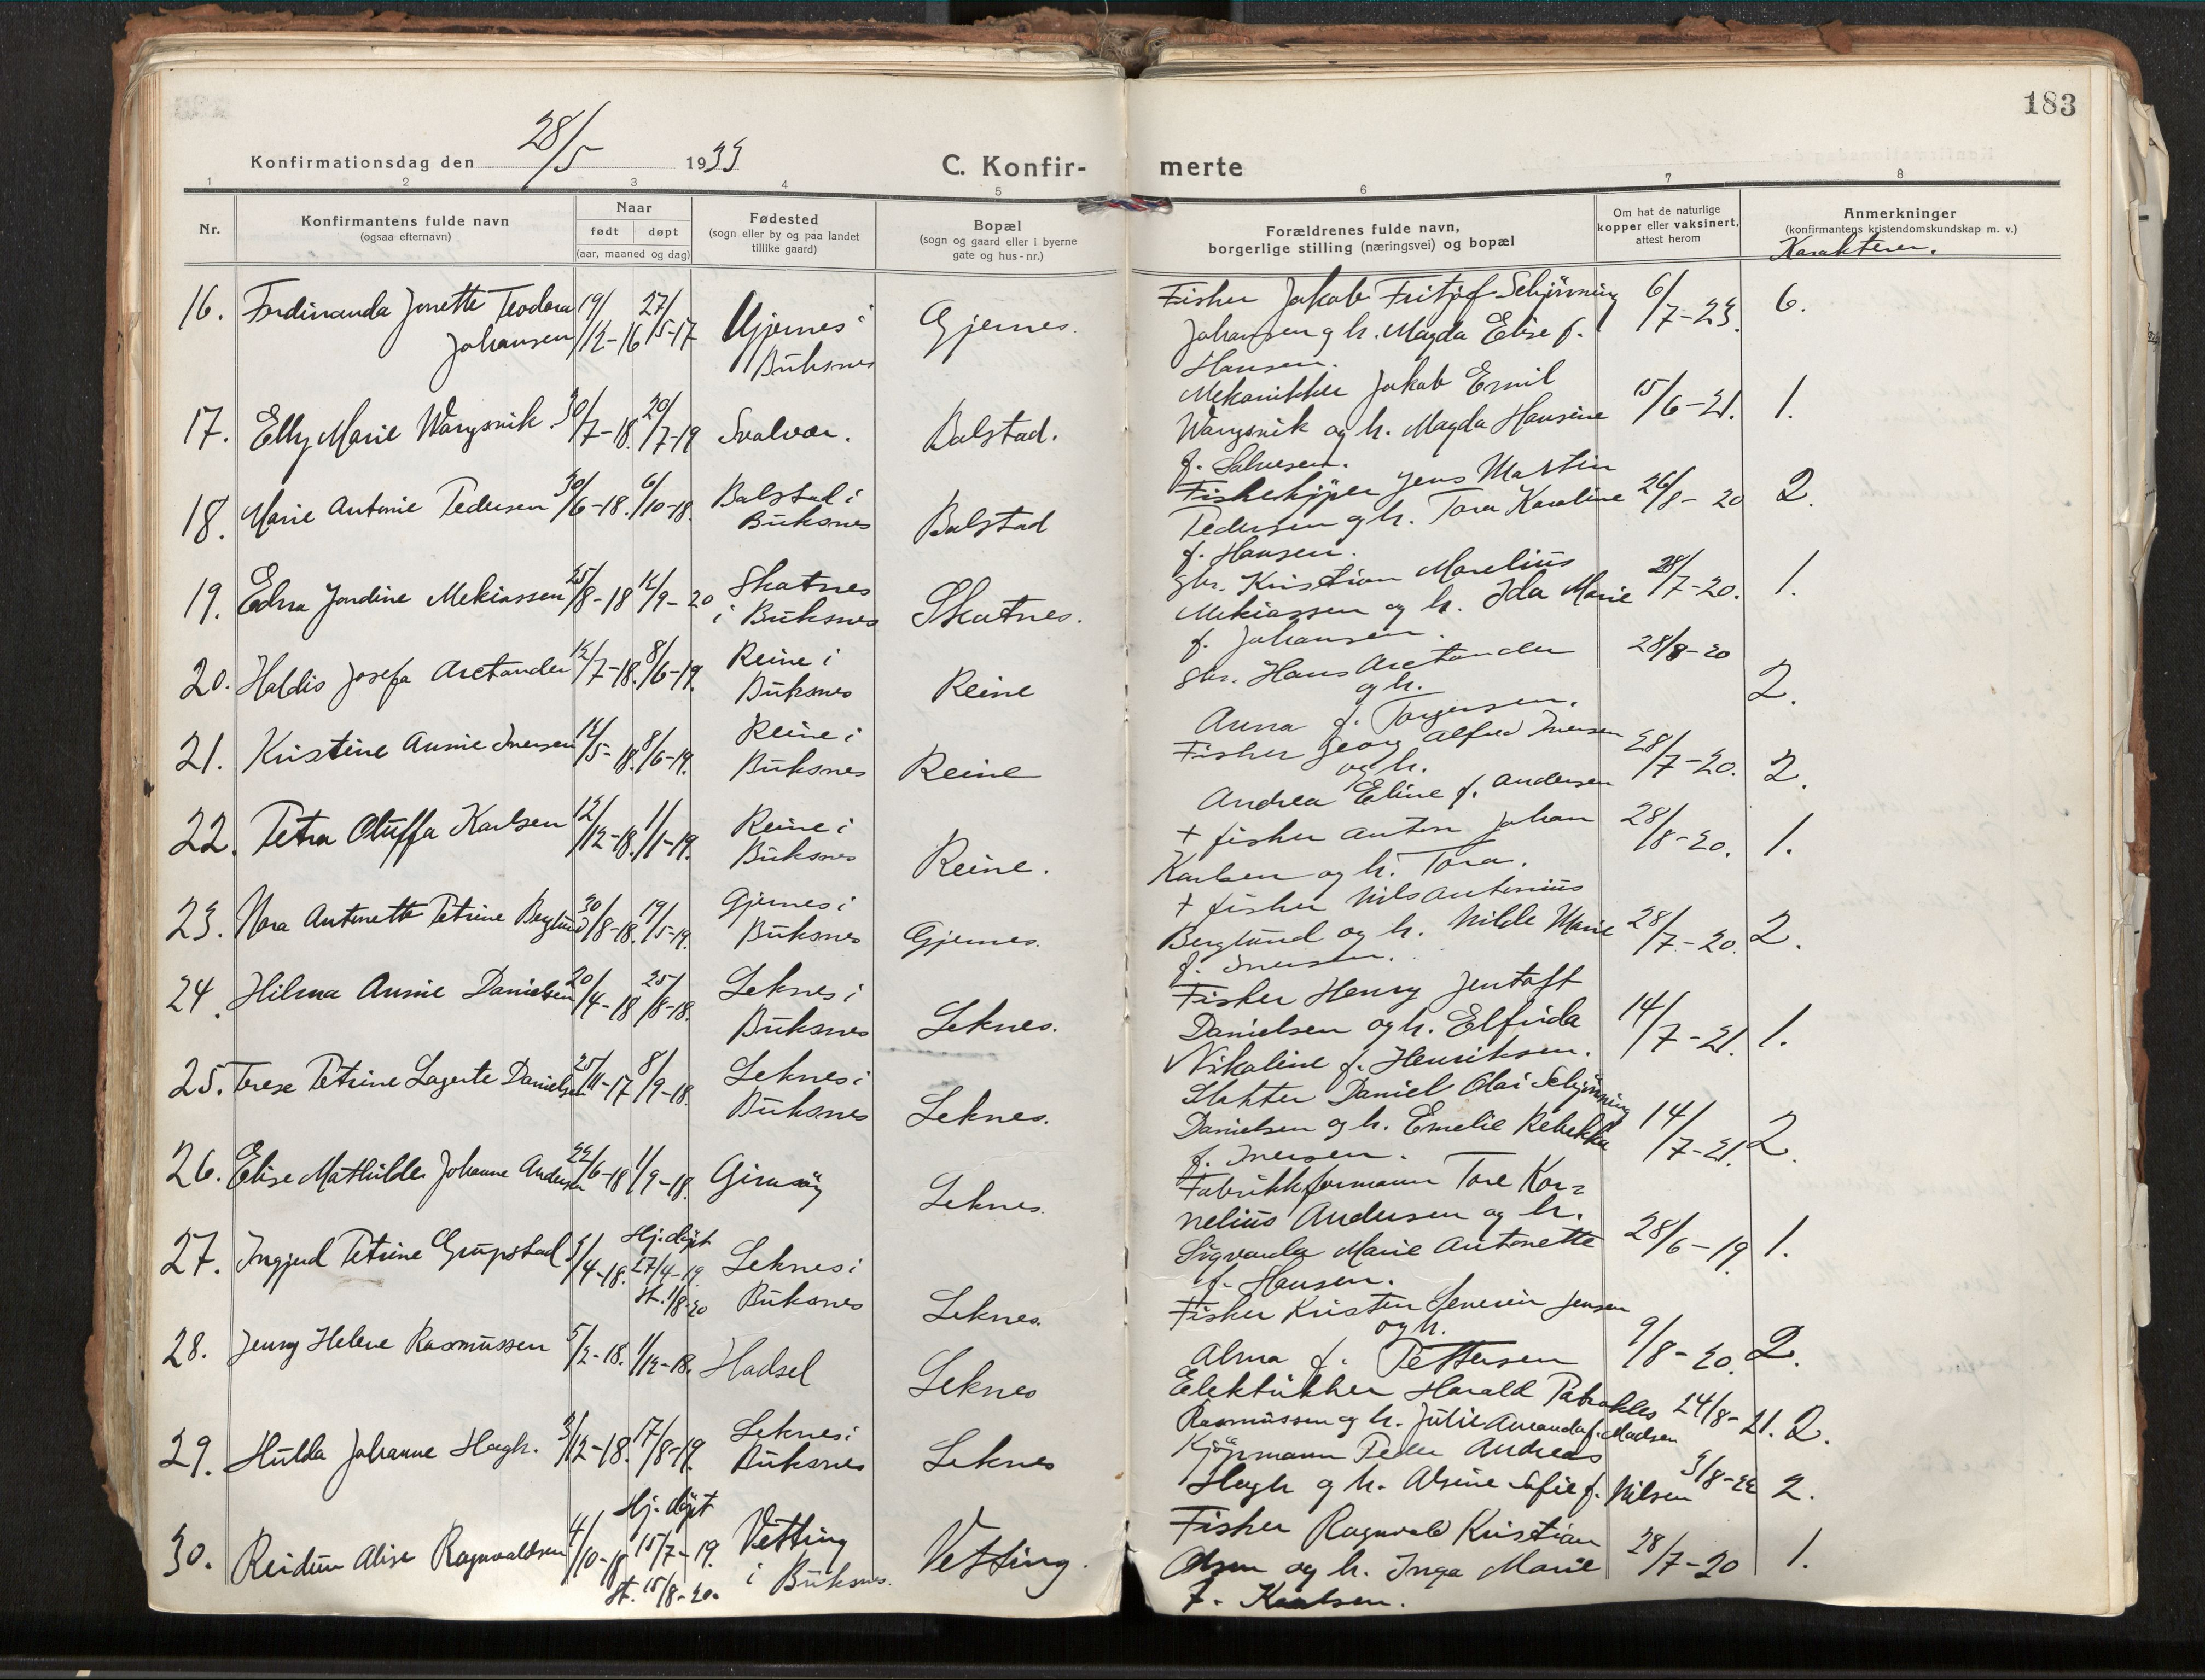 183
Konfirmationsdag den 28/5 1933
C. Konfir- merte
1 2 3 4 5 6 7 8
Nr.
Konfirmantens fulde navn
(ogsaa efternavn)
Naar
født døpt
(aar, maaned og dag)
Fødested
(sogn eller by og paa landet
tillike gaard)
Bopæl
(sogn og gaard eller i byerne
gate og hus-nr.)
Forældrenes fulde navn,
borgerlige stilling (næringsvei) og bopæl
Om hat de naturlige
kopper eller vaksinert,
attest herom
Anmerkninger
(konfirmantens kristendomskundskap m. v.)
Karakterer.
16. Ferdinanda Jonette Teodora
Johansen
19/12-16 27/5-17
Gjernes i
Buksnes
Gjernes.
Fisker Jakob Fritjof Schjönning
Johansen og h. Magda Elise f.
Hansen.
6/7-23. 6.
17. Elly Marie Wangsvik. 30/7-18. 20/7-19 Svolvær. Balstad.
Mekanikker Jakob Emil
Wangsvik og h. Magda Hansine
f. Salvesen.
15/6-21. 1.
18. Marie Antonie Pedersen 30/6-18. 6/10-18.
Balstad i
Buksnes
Balstad
Fiskekjöper Jens Martin
Pedersen og h. Tora Karoline
f. Hansen.
26/8-20 2.
19. Edna Jordine Mekiassen 25/8-18 12/9-20
Skotnes
i Buksnes
Skotnes.
Gbr. Kristian Marelius
Mekiassen og h. Ida Marie
f. Johansen.
28/7-20. 1.
20. Haldis Josefa Arctander 12/7-18. 8/6-19.
Reine i
Buksnes
Reine
Gbr. Hans Arctander
og h.
Anna f. Torgersen.
28/8-20 2.
21. Kristine Annie Iversen 12/5-18. 8/6-19.
Reine i
Buksnes
Reine
Fisker Georg Alfred Iversen
og h.
Andrea Eline f. Andersen
28/7-20. 2.
22. Petra Oluffa Karlsen 12/12-18. 1/1-19.
Reine i
Buksnes
Reine.
+ fisker Anton Johan
Karlsen og h. Tora.
28/8-20. 1.
23. Nora Antonette Petrine Berglund 30/8-18. 19/5-19.
Gjernes i
Buksnes
Gjernes.
+ fisker Nils Antonius
Berglund og h. Hilde Marie
f. Iversen.
28/7-20. 2.
24. Hilma Annie Danielsen 20/4-18 25/8-18.
Leknes i
Buksnes
Leknes.
Fisker Henry Jentoft
Danielsen og h. Elfrida
Nikoline f. Henriksen.
14/7-21. 1.
25. Terese Petrine Lagerte Danielsen 25/11-17 8/9-18.
Leknes i
Buksnes
Leknes.
Slakter Daniel Olai Schjönning
Danielsen og h. Emelie Rebekka
f. Iversen.
14/7-21. 2.
26. Elise Mathilde Johanne Andersen 22/6-18 1/9-18. Gimsöy Leknes.
Fabrikkformann Tore Kor=
nelius Andersen og h.
Sigvarda Marie Antonette
f. Hansen.
28/6-19. 1.
27. Ingjerd Petrine Grupstad 3/4-18.
Hj. döpt
27/4-19.
st. 1/8-20
Leknes i
Buksnes
Leknes.
Fisker Kristen Severin Jensen
og h.
Alma f. Pettersen
9/8-20. 2.
28. Jenny Helene Rasmussen 5/2-18. 1/12-18. Hadsel Leknes
Elektrikker Harald Patrokles
Rasmussen og h. Julie Amanda f. Madsen
24/8-21. 2.
29. Hulda Johanne Hagh. 3/12-18. 17/8-19.
Leknes i
Buksnes
Leknes
Kjöpmann Peder Andreas
Hagh og h. Alsine Sofie f. Nilsen
3/8-22 2.
30. Reidun Alise Ragnvaldsen 4/10-18
Hj. döpt
15/7-19.
st. 15/8-20.
Vetting
i Buksnes.
Vetting.
Fisker Ragnvald Kristian
Olsen og h. Inga Marie
f. Karlsen.
28/7-20 1.